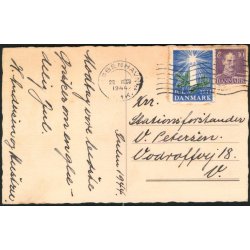 KØBENHAVN
1944
DANMARK
DANMARK
Julen 1944.
Modtag vore bedste
Ønsker om en glæde-
delig Jul.
Hr.
Stationsforstander
V. Petersen.
Vodroffvej 18.
V.